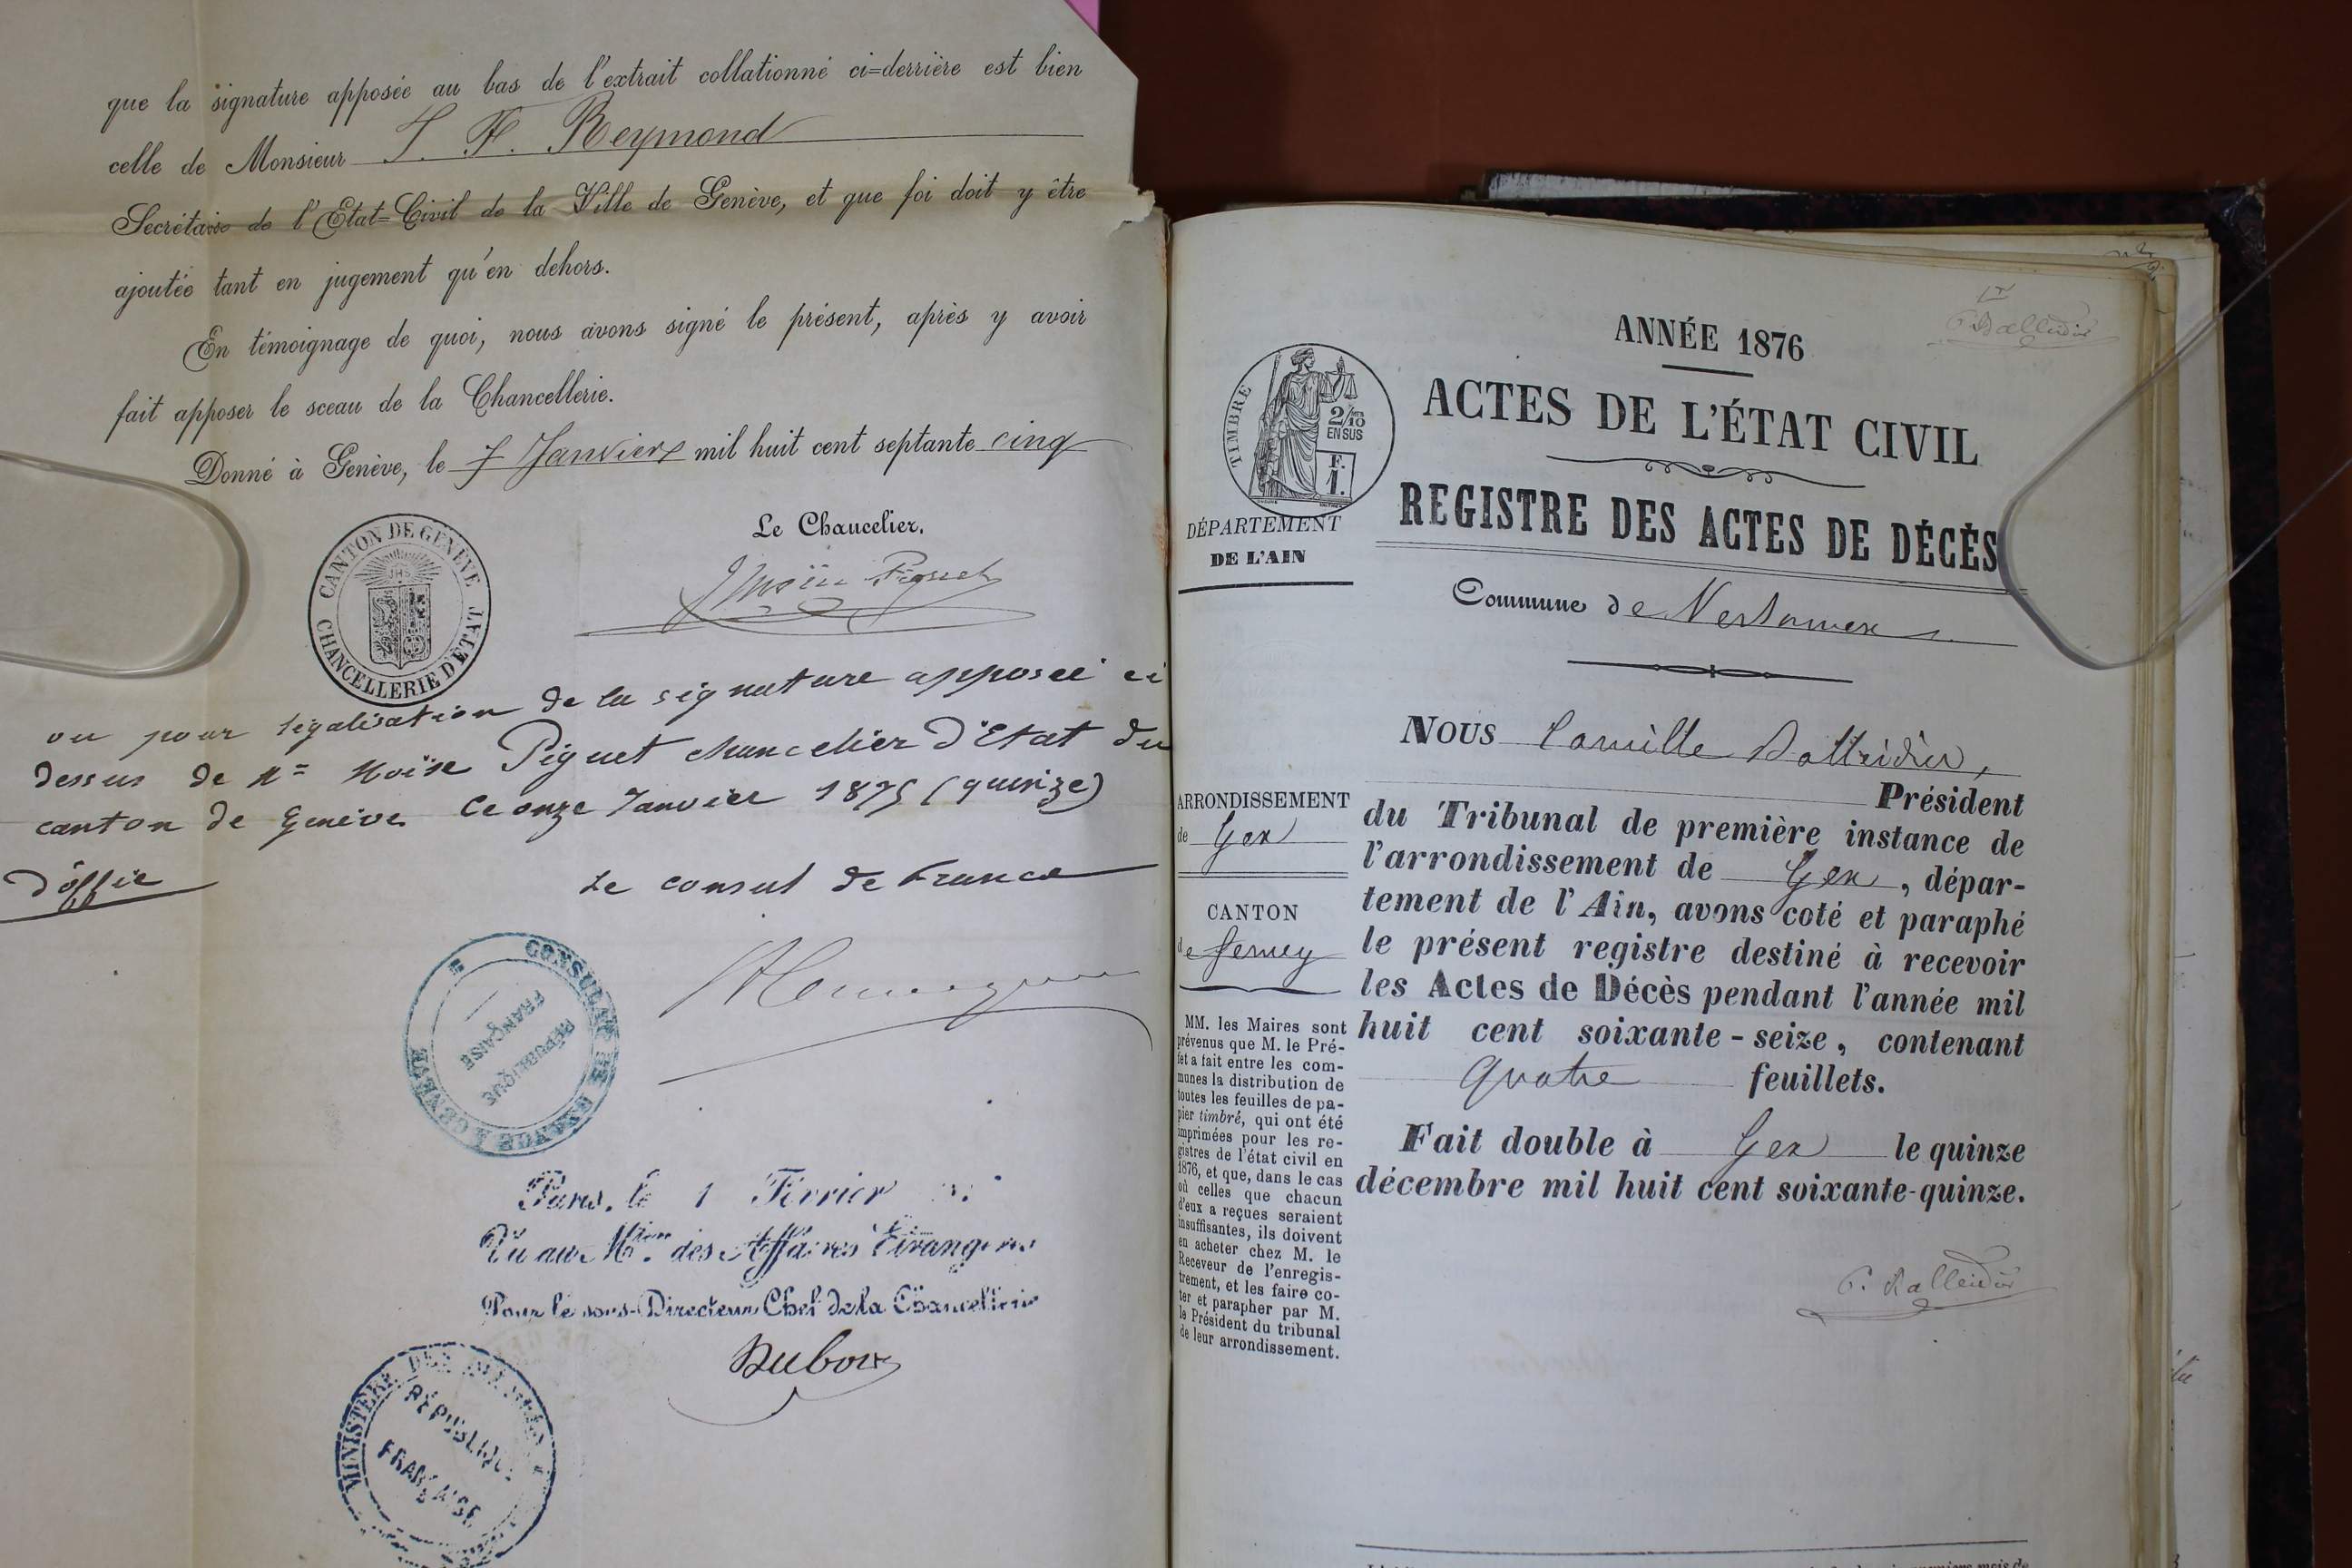 que la signature apposée au bas de l'extrait collationné ci=derrière est bien
celle de Monsieur J. F. Reymond
Secrétaire de l'Etat=Civil de la Ville de Genève, et que foi doit y être
ajoutée tant en jugement qu'en dehors.
En témoignage de quoi, nous avons signé le présent, après y avoir
fait apposer le sceau de la Chancellerie.
Donné à Genève, le 7 Janvier mil huit cent septante cinq
Le Chancelier.
Moïse Piguet
CANTON DE GENÈVE
CHANCELLERIE D'ÉTAT
JHS
vu pour légalisation de la signature apposée ci
dessus de Mr Moïse Piguet chancelier d'Etat du
canton de Genève Ce onze Janvier 1875 (quinze)
d'office
Le consul de France
CONSULAT DE FRANCE À GENÈVE
RÉPUBLIQUE
FRANÇAISE
Paris, le 1 Février
Vu au Mtère des Affaires Etrangères
Pour le sous-Directeur Chef de la Chancellerie
Dubois
MINISTÈRE DES AFFAIRES
RÉPUBLIQUE
FRANÇAISE
ANNÉE 1876
ACTES DE L'ÉTAT CIVIL
REGISTRE DES ACTES DE DÉCÈS
TIMBRE
2/10
EN SUS
F.
1.
DÉPARTEMENT
DE L'AIN
Commune de Versonnex
NOUS Camille
Président
du Tribunal de première instance de
l'arrondissement de Gex, dépar-
tement de l'Ain, avons coté et paraphé
le présent registre destiné à recevoir
les Actes de Décès pendant l'année mil
huit cent soixante-seize, contenant
quatre feuillets.
Fait double à Gex le quinze
décembre mil huit cent soixante-quinze.
ARRONDISSEMENT
de Gex
CANTON
de Ferney
MM. les Maires sont
prévenus que M. le Pré-
fet a fait entre les com-
munes la distribution de
toutes les feuilles de pa-
pier timbré, qui ont été
imprimées pour les re-
gistres de l'état civil en
1876, et que, dans le cas
où celles que chacun
d'eux a reçues seraient
insuffisantes, ils doivent
en acheter chez M. le
Receveur de l'enregis-
trement, et les faire co-
ter et parapher par M.
le Président du tribunal
de leur arrondissement.